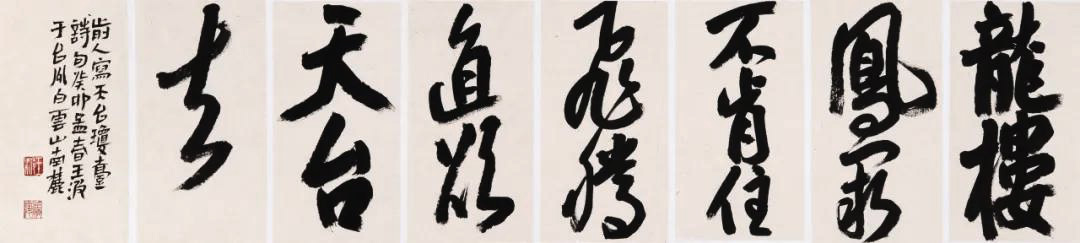 龍樓
鳳闕
不肯住
飛騰
直欲
天台
去
歬人寫天台瓊臺
詩句癸卯孟春王波
于台州白雲山南麓